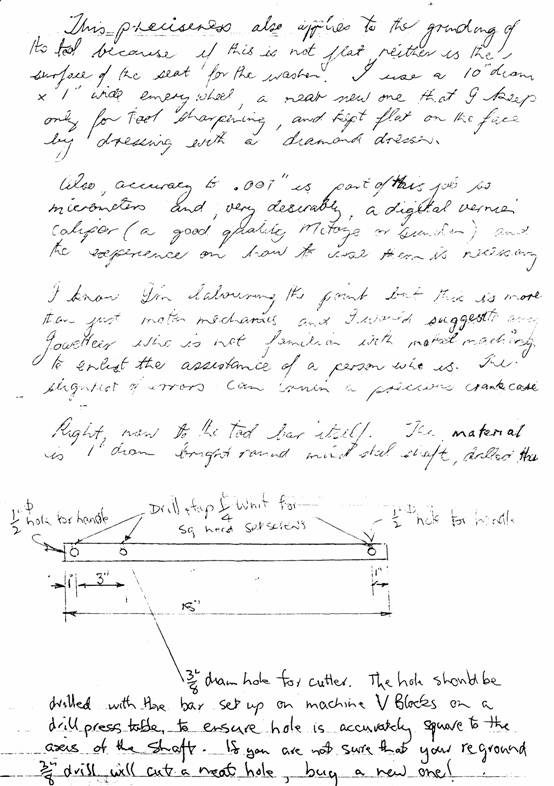 This preciseness also applies to the grinding of
the tool because if this is not flat, neither is the
surface of the seat for the washer. I use a 10" diam
x 1" wide emery wheel, a near new one that I keep
only for tool sharpening, and kept flat on the face
by dressing with a diamond dresser.
Also, accuracy to .001" is part of this job so
micrometers and, very desirably, a digital vernier
caliper (a good quality or ) and
the experience on how to use them is necessary
I know I'm labouring the point but this is more
than just motor mechanics and I would suggest any
Jowetteer who is not familiar with metal machining
to enlist the assistance of a person who is. The
slightest of errors can ruin a precious crankcase
Right, now to the tool bar itself. The material
is 1" diam bright round mild steel shaft, drilled thus
1/2" Φ hole for handle
Drill, tap 1/4 Whit for
sq head setscrews
1/2" Φ hole for handle
1" 3" 1"
18"
3/8" diam hole for cutter. The hole should be
drilled with the bar set up on machine V Blocks on a
drill press table, to ensure hole is accurately square to the
axis of the shaft. If you are not sure that your reground
3/8" drill will cut a neat hole, buy a new one!